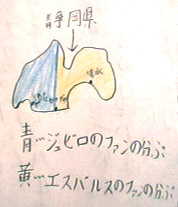 静岡県
清水
青…ジュビロのファンの分ぷ
黄…エスパルスのファンの分ぷ